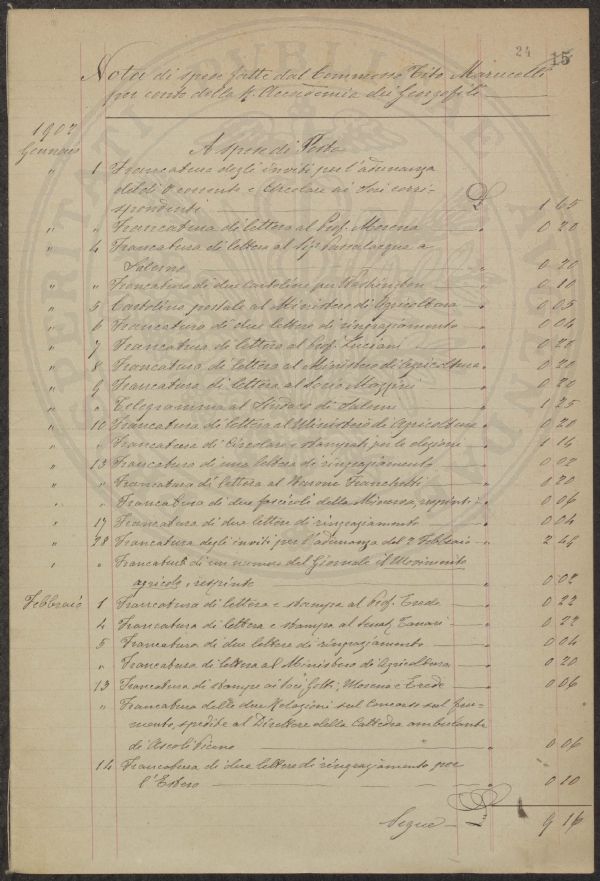 24 15
Nota di spese fatte dal Commesso Tito Marucelli
per conto della R. Accademia dei Georgofili
1902
Gennaio
A spese di Posta
" 1 Francatura degli inviti per l'adunanza
del dì 9 corrente e Circolare ai Soci corri-
spondenti £ 1 65
" " Francatura di lettera al Prof. Morena " 0 20
" 4 Francatura di lettera al Sig. Passalacqua a
Salerno " 0 20
" " Francatura di due Cartoline per Washington " 0 10
" 5 Cartolina postale al Ministero di Agricoltura " 0 05
" 6 Francatura di due lettere di ringraziamento " 0 04
" 7 Francatura di lettera al Prof. Luciani " 0 20
" 8 Francatura di lettera al Ministero di Agricoltura " 0 20
" 9 Francatura di lettera al Socio Mazzini " 0 20
" " Telegramma al Sindaco di Salemi " 1 25
" 10 Francatura di lettera al Ministero di Agricoltura " 0 20
" " Francatura di Circolari e stampati per le elezioni " 1 14
" 13 Francatura di una lettera di ringraziamento " 0 02
" " Francatura di lettera al Barone Franchetti " 0 20
" " Francatura di due fascicoli della Minerva, respinti " 0 06
" 17 Francatura di due lettere di ringraziamento " 0 04
" 28 Francatura degli inviti per l'adunanza del 2 Febbraio " 2 49
" " Francatura di un numero del Giornale il Movimento
agricolo, respinto " 0 02
Febbraio 1 Francatura di lettera e stampa al Prof. Erede " 0 22
4 Francatura di lettera e stampa al Senat. Tanari " 0 22
5 Francatura di due lettere di ringraziamento " 0 04
" Francatura di lettera al Ministero di Agricoltura " 0 20
13 Francatura di stampe ai Soci Gotti, Morena e Erede " 0 06
" Francatura delle due Relazioni sul Concorso sul fru-
mento, spedite al Direttore della Cattedra ambulante
di Ascoli Piceno " 0 06
14 Francatura di due lettere di ringraziamento per
l'Estero " 0 10
Segue 9 16